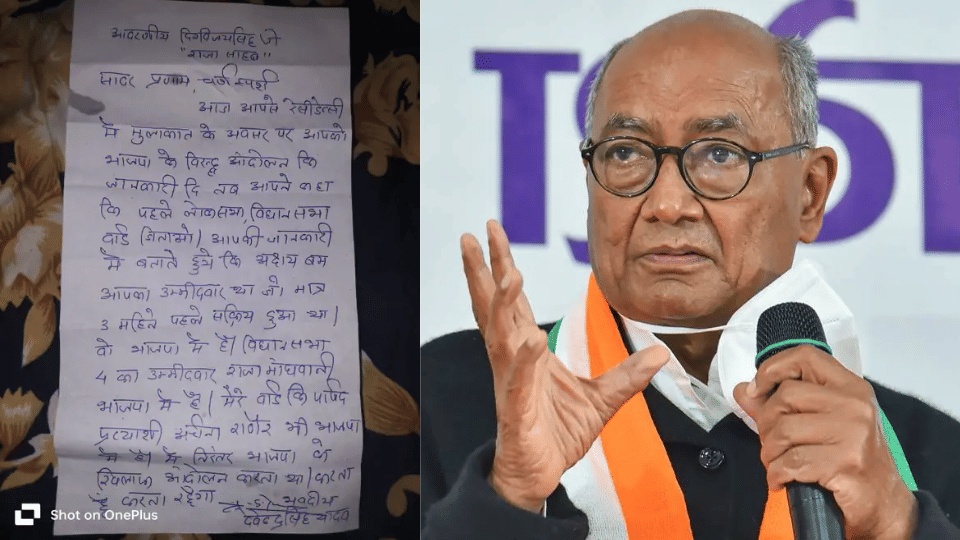 आदरणीय दिग्विजयसिंह जी
"राजा साहब"
सादर प्रणाम चरणस्पर्श
आज आपसे रेसीडेन्सी
मे मुलाकात के अवसर पर आपको
भाजपा के विरूद्ध आंदोलन कि
जानकारी दि तब आपने कहा
कि पहले लोकसभा, विधानसभा
वार्ड जिताओ। आपकी जानकारी
मे बताते हुये कि अक्षय बम
आपका उम्मीदवार था जो मात्र
3 महिने पहले सक्रिय हुआ था।
वो भाजपा मे है। विधानसभा
4 का उम्मीदवार राजा मांधवानी
भाजपा मे है। मेरे वार्ड कि पार्षद
प्रत्याशी अर्चना राठौर भी भाजपा
मे है। मै निरंतर भाजपा के
खिलाफ आंदोलन करता था। करता
है करता रहूँगा
भवदीय
देवेन्द्रसिंह यादव
Shot on OnePlus